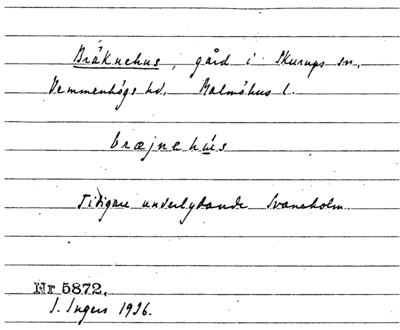 Bräknehus, gård i Skurups sn.
Vemmenhögs hd, Malmöhus l.
bræjnehús
Tidigare underlydande Svaneholm.
Nr 5872.
I. Ingers 1936.